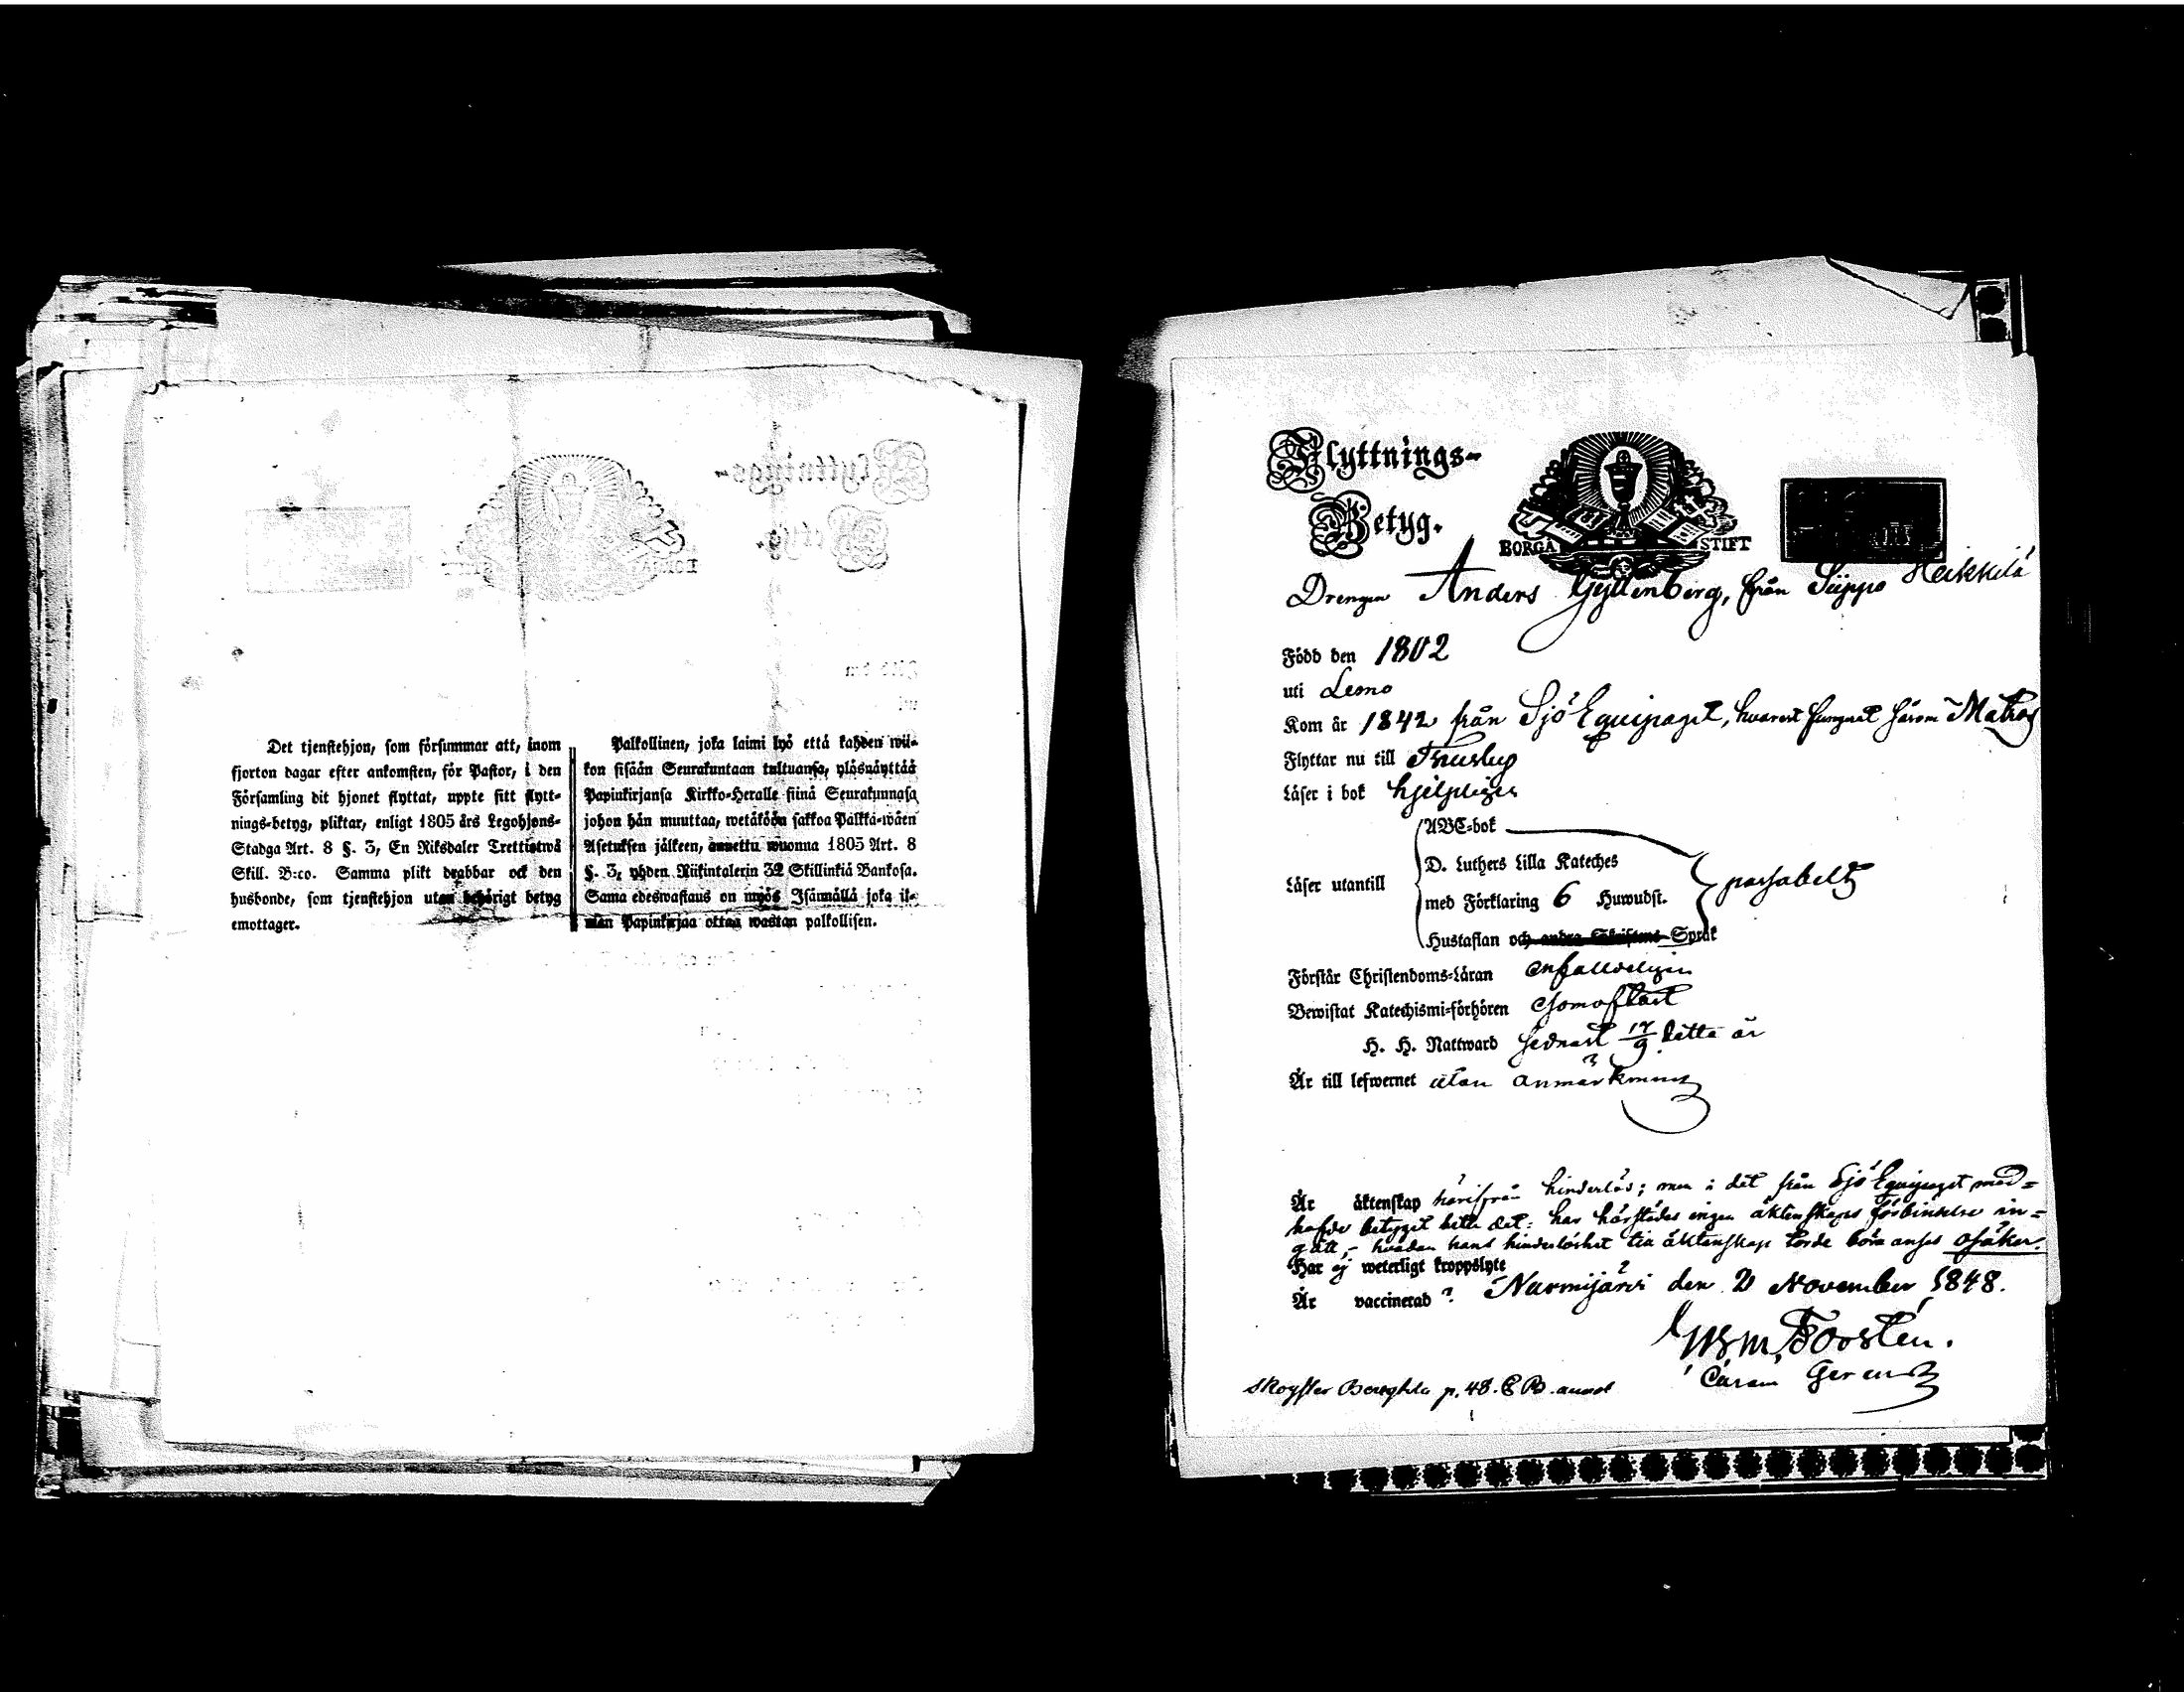 Det tjenstehjon, som försummar att, inom
fjorton dagar efter ankomsten, för Pastor, i den
Församling dit hjonet flyttat, uppte sitt flytt-
nings-betyg, pliktar, enligt 1805 års Legohjons-
Stadga Art. 8 §. 3, En Riksdaler Trettiotwå
Skill. B:co. Samma plikt drabbar ock den
husbonde, som tjenstehjon utan behörigt betyg
emottager.
Palkollinen, joka laimi lyö että kahden wii-
kon sisään Seurakuntaan tultuansa, ylösnäyttää
Papinkirjansa Kirkko-Heralle siinä Seurakunnasa
johon hän muuttaa, wetäköön sakkoa Palkka-wäen
Asetuksen jälkeen, annettu wuonna 1805 Art. 8
§. 3, yhden Riikintalerin 32 Skillinkiä Bankosa.
Sama edeswastaus on myös Isännällä joka il-
man Papinkirjaa ottaa wastan palkollisen.
Flyttnings-
Betyg.
BORGÅ STIFT
Drengen Anders Gyllenberg, från Siippo Heikkilä
Född den 1802
uti Lemo
Kom år 1842 från Sjö Equipaget, hvarest fungerat såsom Matros
Flyttar nu till Thusby
Läser i bok hjelpligen
ABC-bok
D. Luthers Lilla Kateches
Läser utantill med Förklaring 6 Huwudst. passabelt
Hustaflan och andra Skriftens Språk
Förstår Christendoms-Läran enfalldeligen
Bewistat Katechismi-förhören somoftast
H. H. Nattward sednast 17/9 detta år
Är till lefwernet utan anmärkning
Är äktenskap härifrån hinderlös; men i det från Sjö Equipaget med-
hafde betyget hette det: har härstädes ingen äktenskaps förbindelse in-
gått, - hvadan hans hinderlöshet till äktenskap torde böra anses osäker.
Har ej weterligt kroppslyte
Är vaccinerad ? Nurmijärvi den 2 November 1848.
Wsm. Forstén.
p. 48.